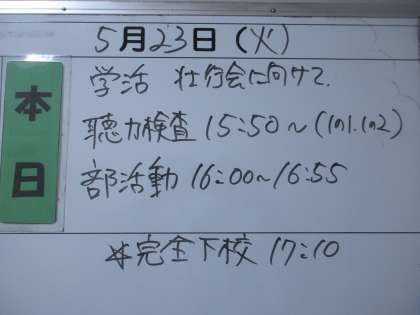 5月23日(火)
本日
学活 壮行会に向けて.
聴力検査 15:50〜(1の1.1の2)
部活動 16:00〜16:55
☆完全下校 17:10